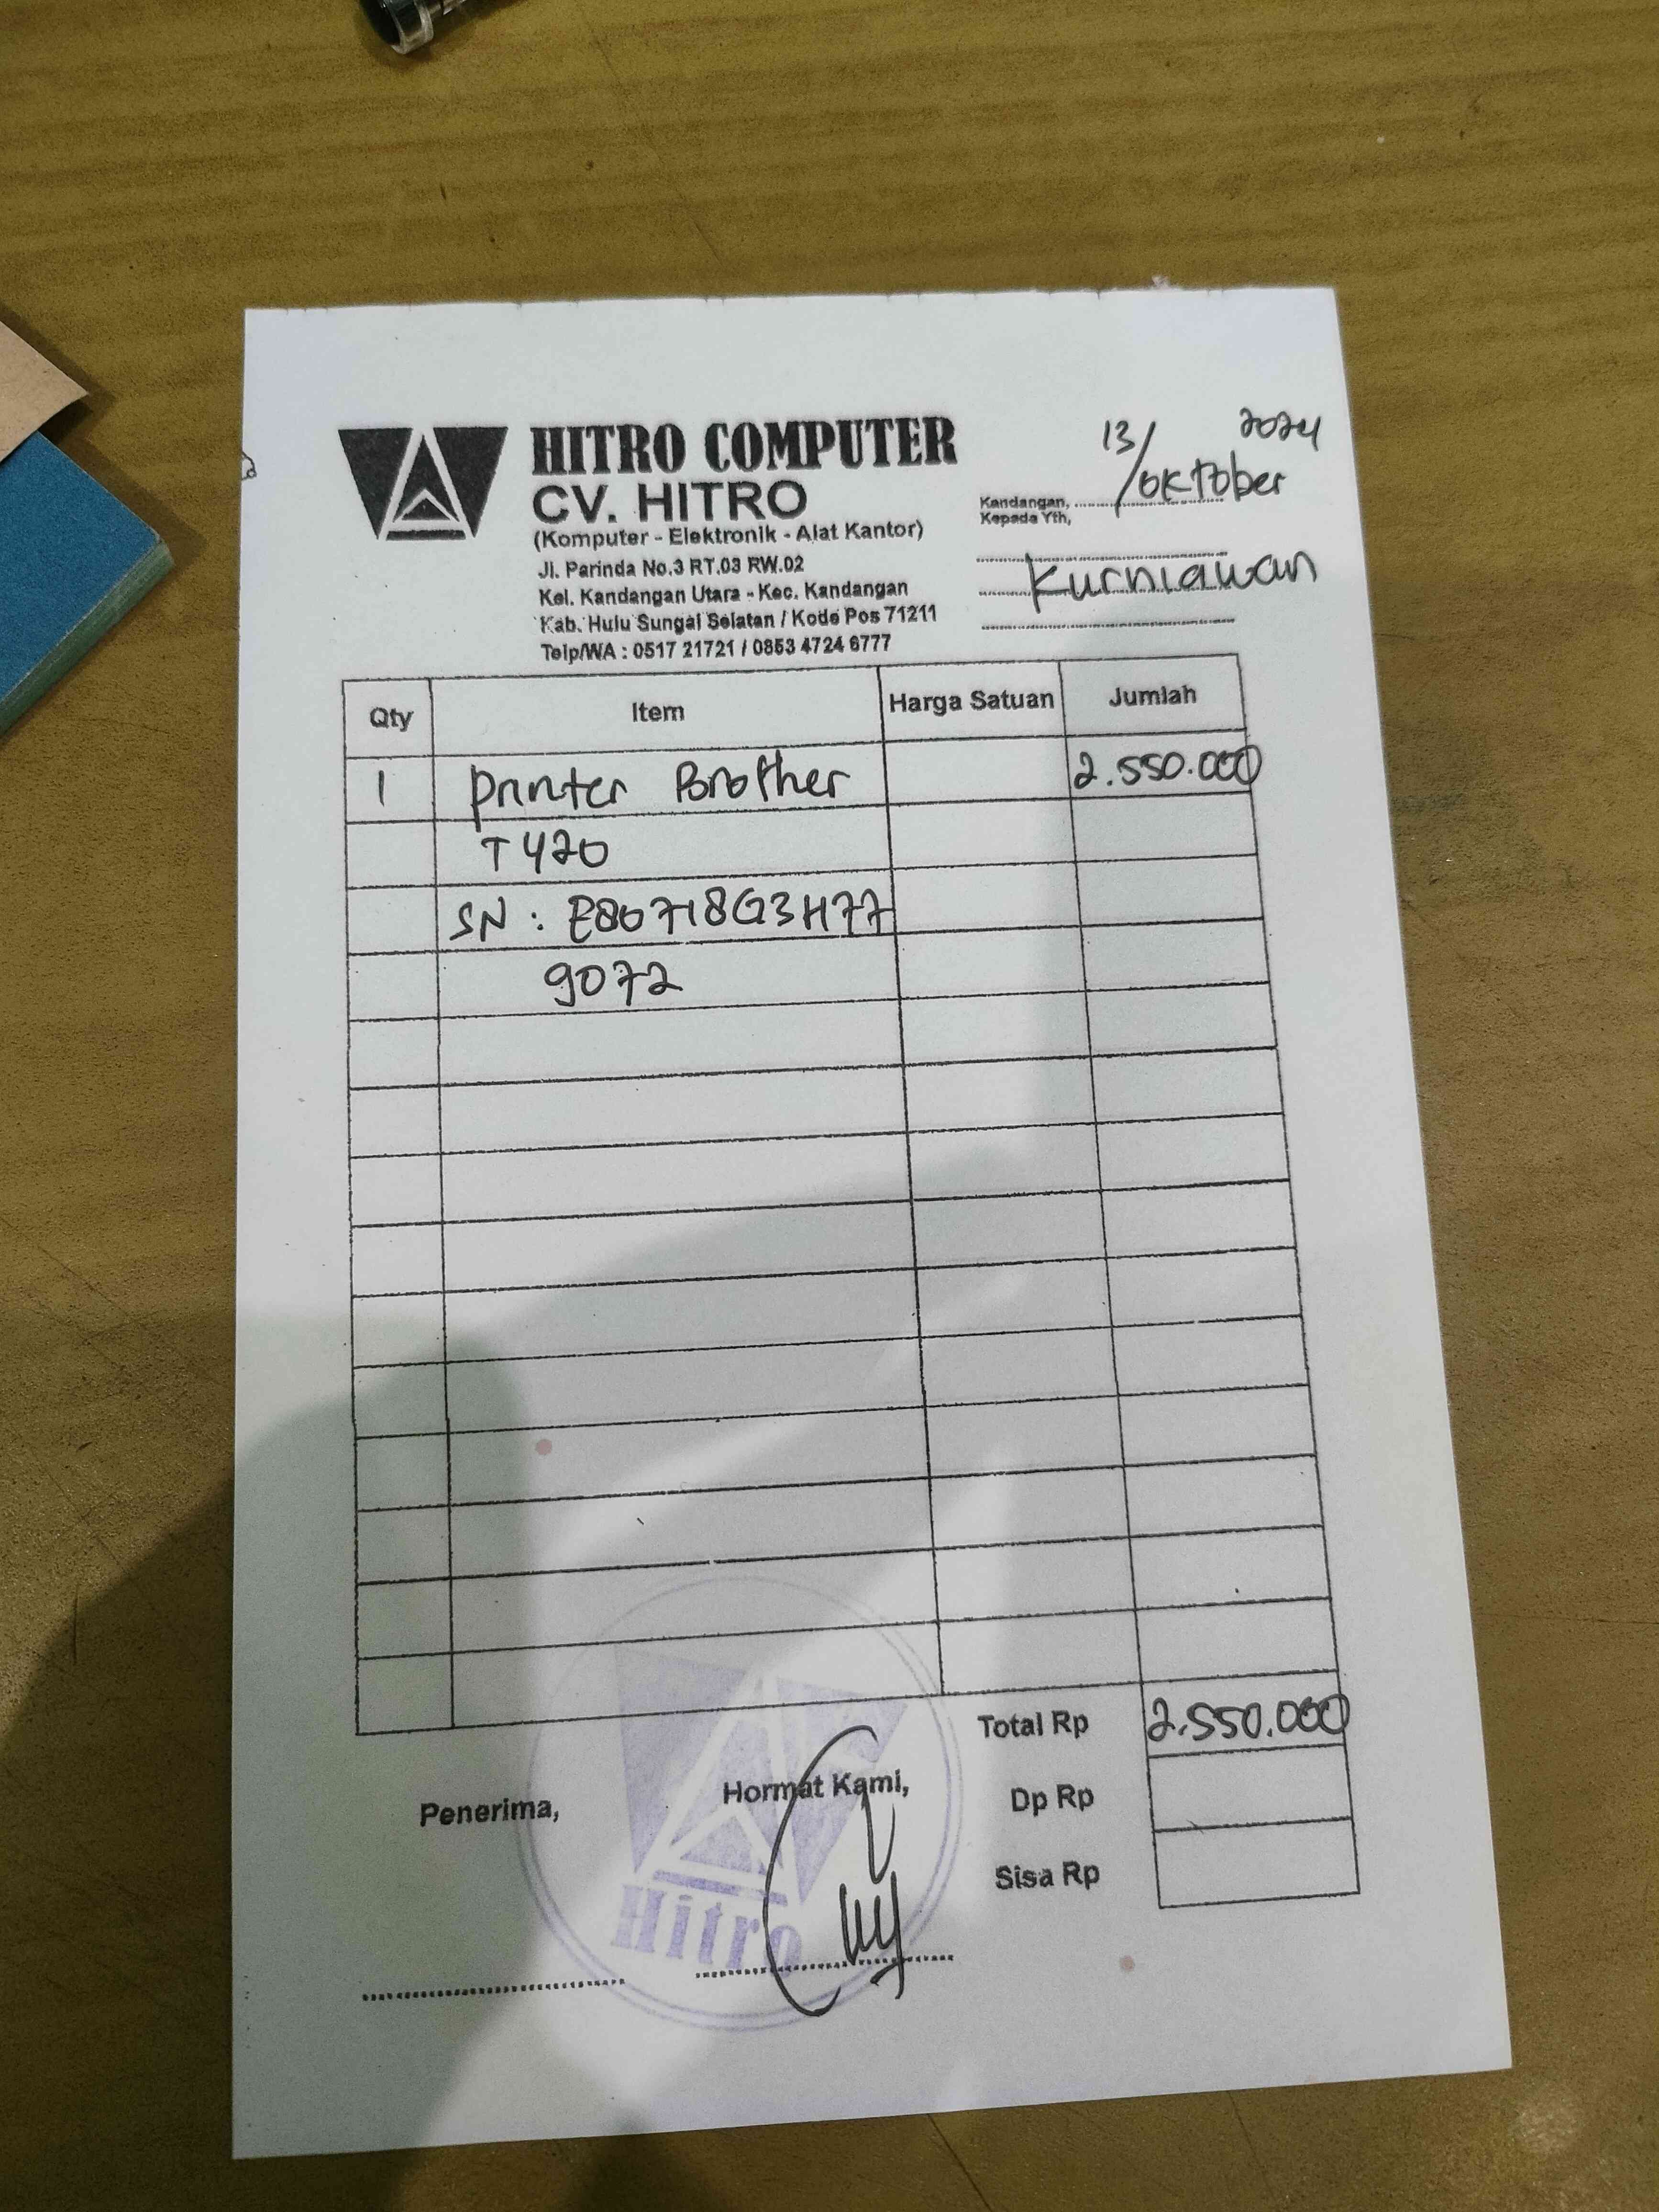 HITRO COMPUTER
CV. HITRO
(Komputer - Elektronik - Alat Kantor)
Jl. Parinda No.3 RT.03 RW.02
Kel. Kandangan Utara - Kec. Kandangan
Kab. Hulu Sungai Selatan / Kode Pos 71211
Telp/WA : 0517 21721 / 0853 4724 6777
13/ Oktober 2024
Kandangan,
Kepada Yth,
Kurniawan
Qty Item Harga Satuan Jumlah
1 Printer Brother 2.550.000
T420
SN : E80718G3H77
9072
Total Rp 2.550.000
Dp Rp
Sisa Rp
Penerima,
Hormat Kami,
Hitro